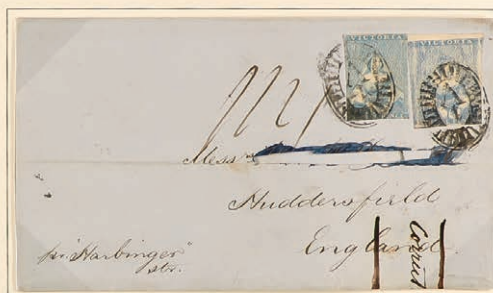 VICTORIA VICTORIA
Mess
Huddersfield
England
pr. "Harbinger"
str.
Correct